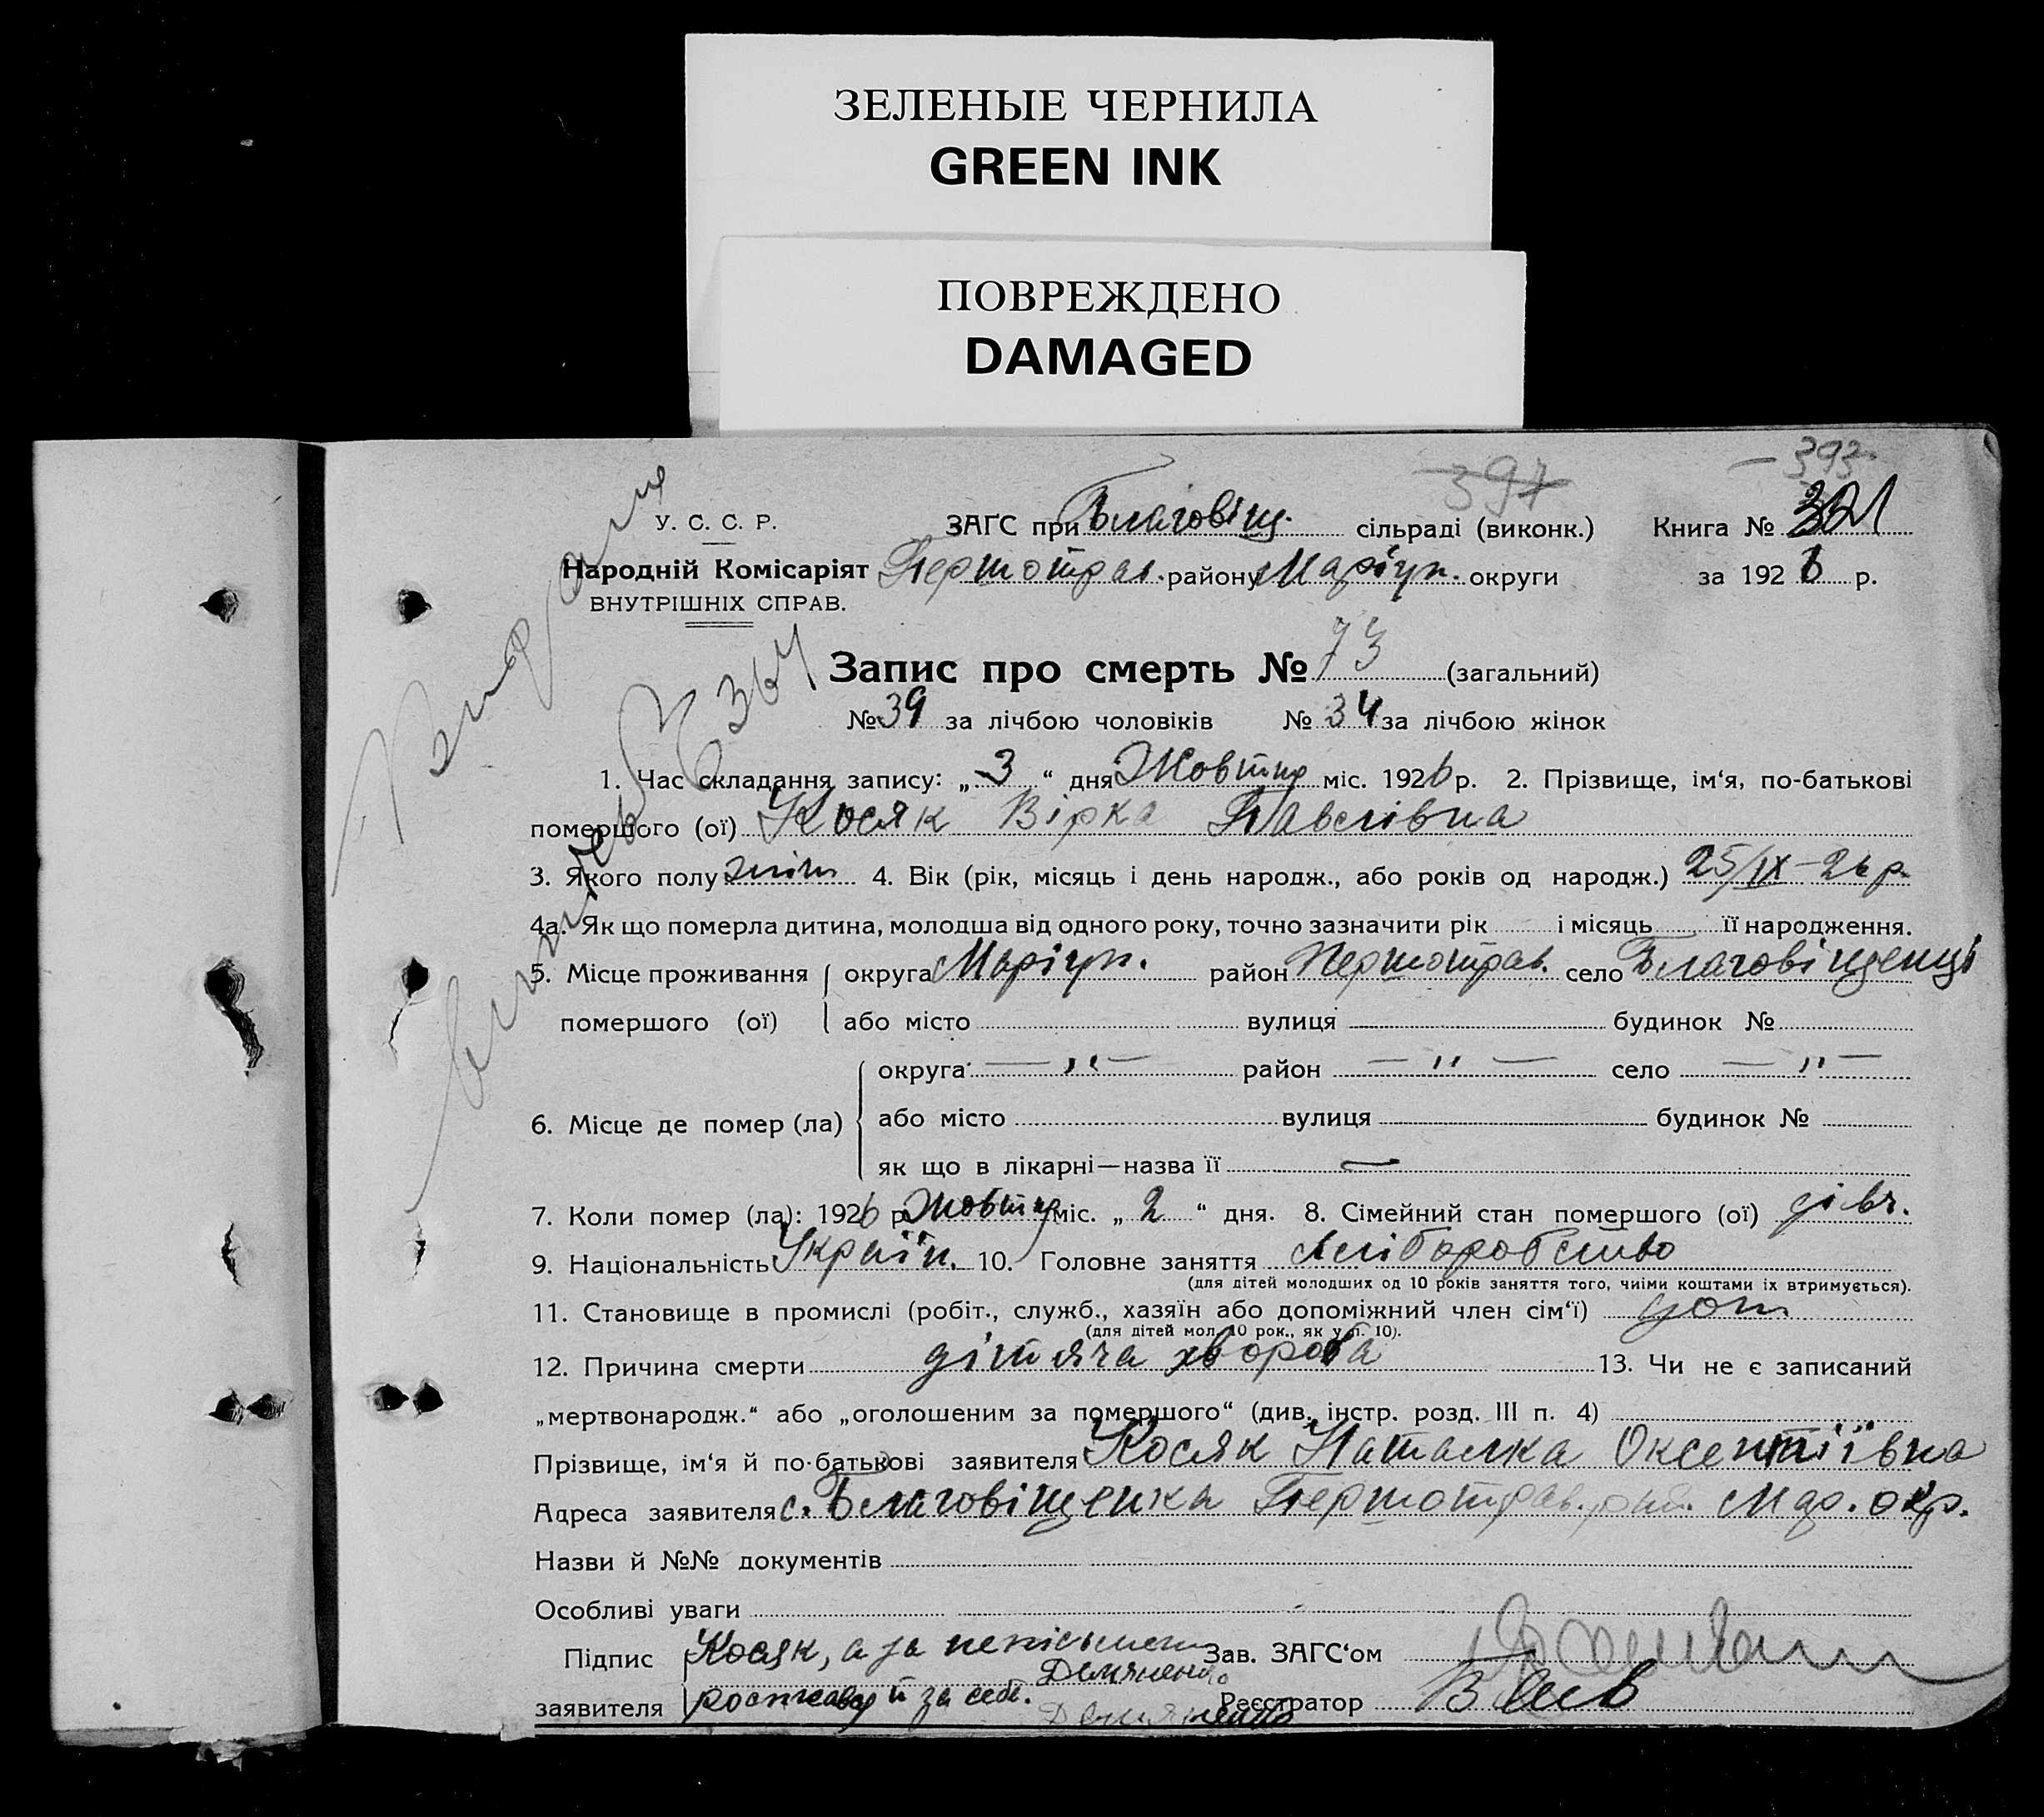 ЗЕЛЕНЫЕ ЧЕРНИЛА
GREEN INK
ПОВРЕЖДЕНО
DAMAGED
397 — 393
У. С. С. Р. ЗАГС при Благовіщ. сільраді (виконк.) Книга № 321
Народній Комісаріят Першотрав. району Маріуп. округи за 1926 р.
ВНУТРІШНІХ СПРАВ.
Запис про смерть № 73 (загальний)
№ 39 за лічбою чоловіків № 34 за лічбою жінок
1. Час складання запису: „3“ дня Жовтня міс. 1926 р. 2. Прізвище, ім‘я, по-батькові
помершого (ої) Косяк Вірка Павлівна
3. Якого полу жіт 4. Вік (рік, місяць і день народж., або років од народж.) 25/IX-26 р.
4а. Як що померла дитина, молодша від одного року, точно зазначити рік і місяць її народження.
5. Місце проживання округа Маріуп. район Першотрав. село Благовіщенці
помершого (ої) або місто вулиця будинок №
округа — „ — район — „ — село — „ —
6. Місце де помер (ла) або місто вулиця будинок №
як що в лікарні—назва її —
7. Коли помер (ла): 1926 р. Жовтня міс. „2“ дня. 8. Сімейний стан помершого (ої) дівч.
9. Національність Україн. 10. Головне заняття хліборобство
(для дітей молодших од 10 років заняття того, чиїми коштами їх втримується).
11. Становище в промислі (робіт., служб., хазяїн або допоміжний член сім‘ї)
(для дітей мол. 10 рок., як у п. 10).
12. Причина смерти дітяча хвороба 13. Чи не є записаний
„мертвонародж.“ або „оголошеним за помершого“ (див. інстр. розд. III п. 4)
Прізвище, ім‘я й по-батькові заявителя Косяк Наталка Оксентіївна
Адреса заявителя с. Благовіщенка Першотрав. рай. Мар. окр.
Назви й №№ документів
Особливі уваги
Підпис Косяк, а за неписьмен Зав. ЗАГС‘ом
Демяненко
заявителя росписався й за себе. Реєстратор
Демяненко